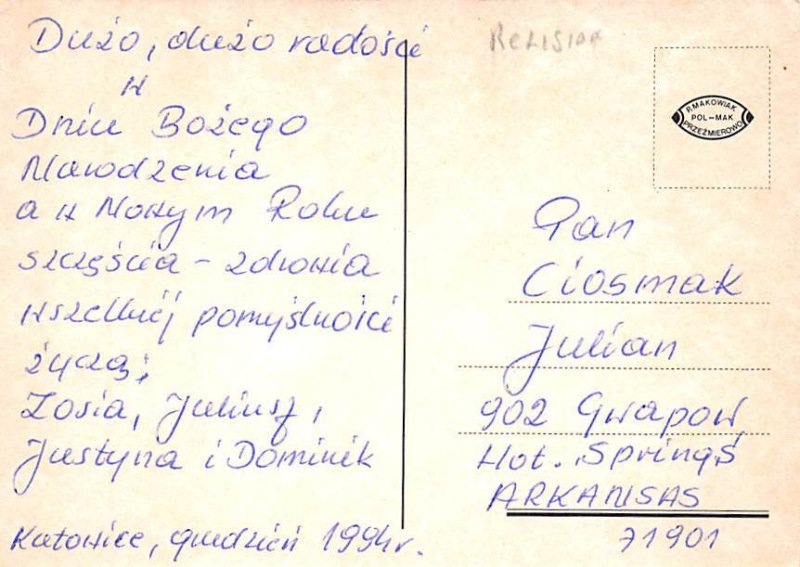 Dużo, dużo radości
w
Dniu Bożego
Narodzenia
a w Nowym Roku
szczęścia - zdrowia
wszelkiej pomyślności
życzą;
Zosia, Juliusz,
Justyna i Dominik
Katowice, grudzień 1994r.
RELISIAR
R.MAKOWIAK
POL-MAK
PRZEŹMIEROWO
Pan
Ciosmak
Julian
902 Gwapow
Hot. Springs
ARKANSAS
71901